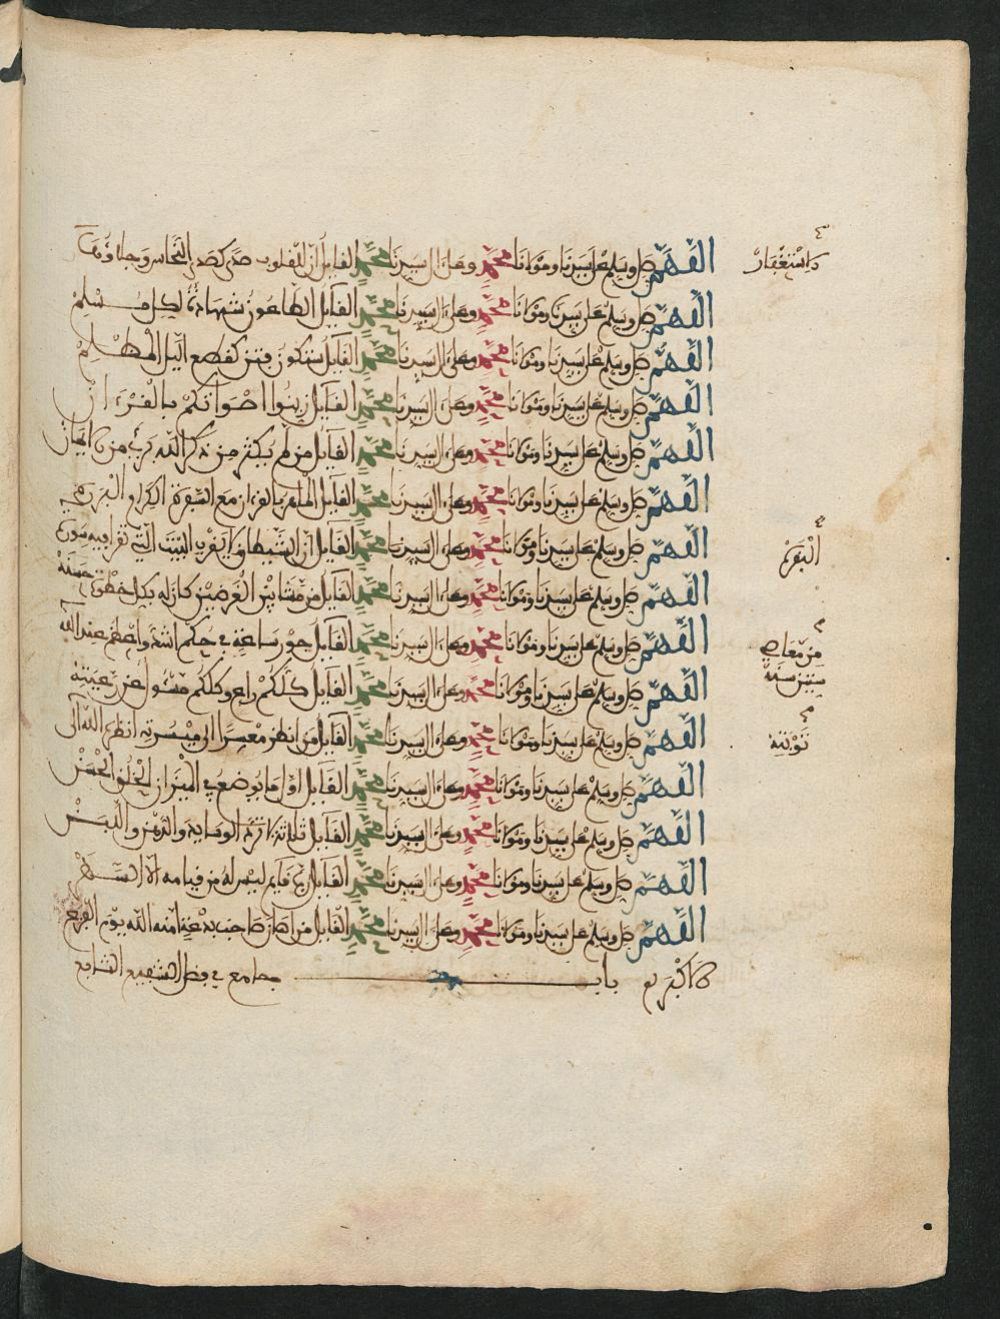 اللهم صل وسلم على سيدنا ومولانا محمد وعلى ال سيدنا محمد القايل ان للقلوب صدى كصدى النحاس وجلاؤها
الاستغفار
اللهم صل وسلم على سيدنا ومولانا محمد وعلى ال سيدنا محمد القايل الطاعون شهادة لكل مسلم
اللهم صل وسلم على سيدنا ومولانا محمد وعلى ال سيدنا محمد القايل ستكون فتن كقطع اليل المظلم
اللهم صل وسلم على سيدنا ومولانا محمد وعلى ال سيدنا محمد القايل زينوا اصواتكم بالقرءان
اللهم صل وسلم على سيدنا ومولانا محمد وعلى ال سيدنا محمد القايل من لم يكثر من ذكر الله بري من الايمان
اللهم صل وسلم على سيدنا ومولانا محمد وعلى ال سيدنا محمد القايل الماهر بالقران مع السفرة الكرام البررة
اللهم صل وسلم على سيدنا ومولانا محمد وعلى ال سيدنا محمد القايل ان الشيطان لا يقرب البيت التي تقرا فيه سورة
البقرة
اللهم صل وسلم على سيدنا ومولانا محمد وعلى ال سيدنا محمد القايل من مشا بين الغرضين كان له بكل خطوة حسنة
اللهم صل وسلم على سيدنا ومولانا محمد وعلى ال سيدنا محمد القايل جور ساعة في حكم اشد واعظم عند الله
من معاصي
ستين سنة
اللهم صل وسلم على سيدنا ومولانا محمد وعلى ال سيدنا محمد القايل كلكم راع وكلكم مسئول عن رعيته
اللهم صل وسلم على سيدنا ومولانا محمد وعلى ال سيدنا محمد القايل من انظر معسرا الى ميسرته انظره الله الى
توبته
اللهم صل وسلم على سيدنا ومولانا محمد وعلى ال سيدنا محمد القايل اول ما يوضع في الميزان الخلق الحسن
اللهم صل وسلم على سيدنا ومولانا محمد وعلى ال سيدنا محمد القايل ثلاثة لا ترد الوسايد والدهن واللبن
اللهم صل وسلم على سيدنا ومولانا محمد وعلى ال سيدنا محمد القايل رب قايم ليس له من قيامه الا السهر
اللهم صل وسلم على سيدنا ومولانا محمد وعلى ال سيدنا محمد القايل من اهان صاحب بدعة امنه الله يوم الفزع
الاكبر باب جامع في فضل الشفيع الشافع